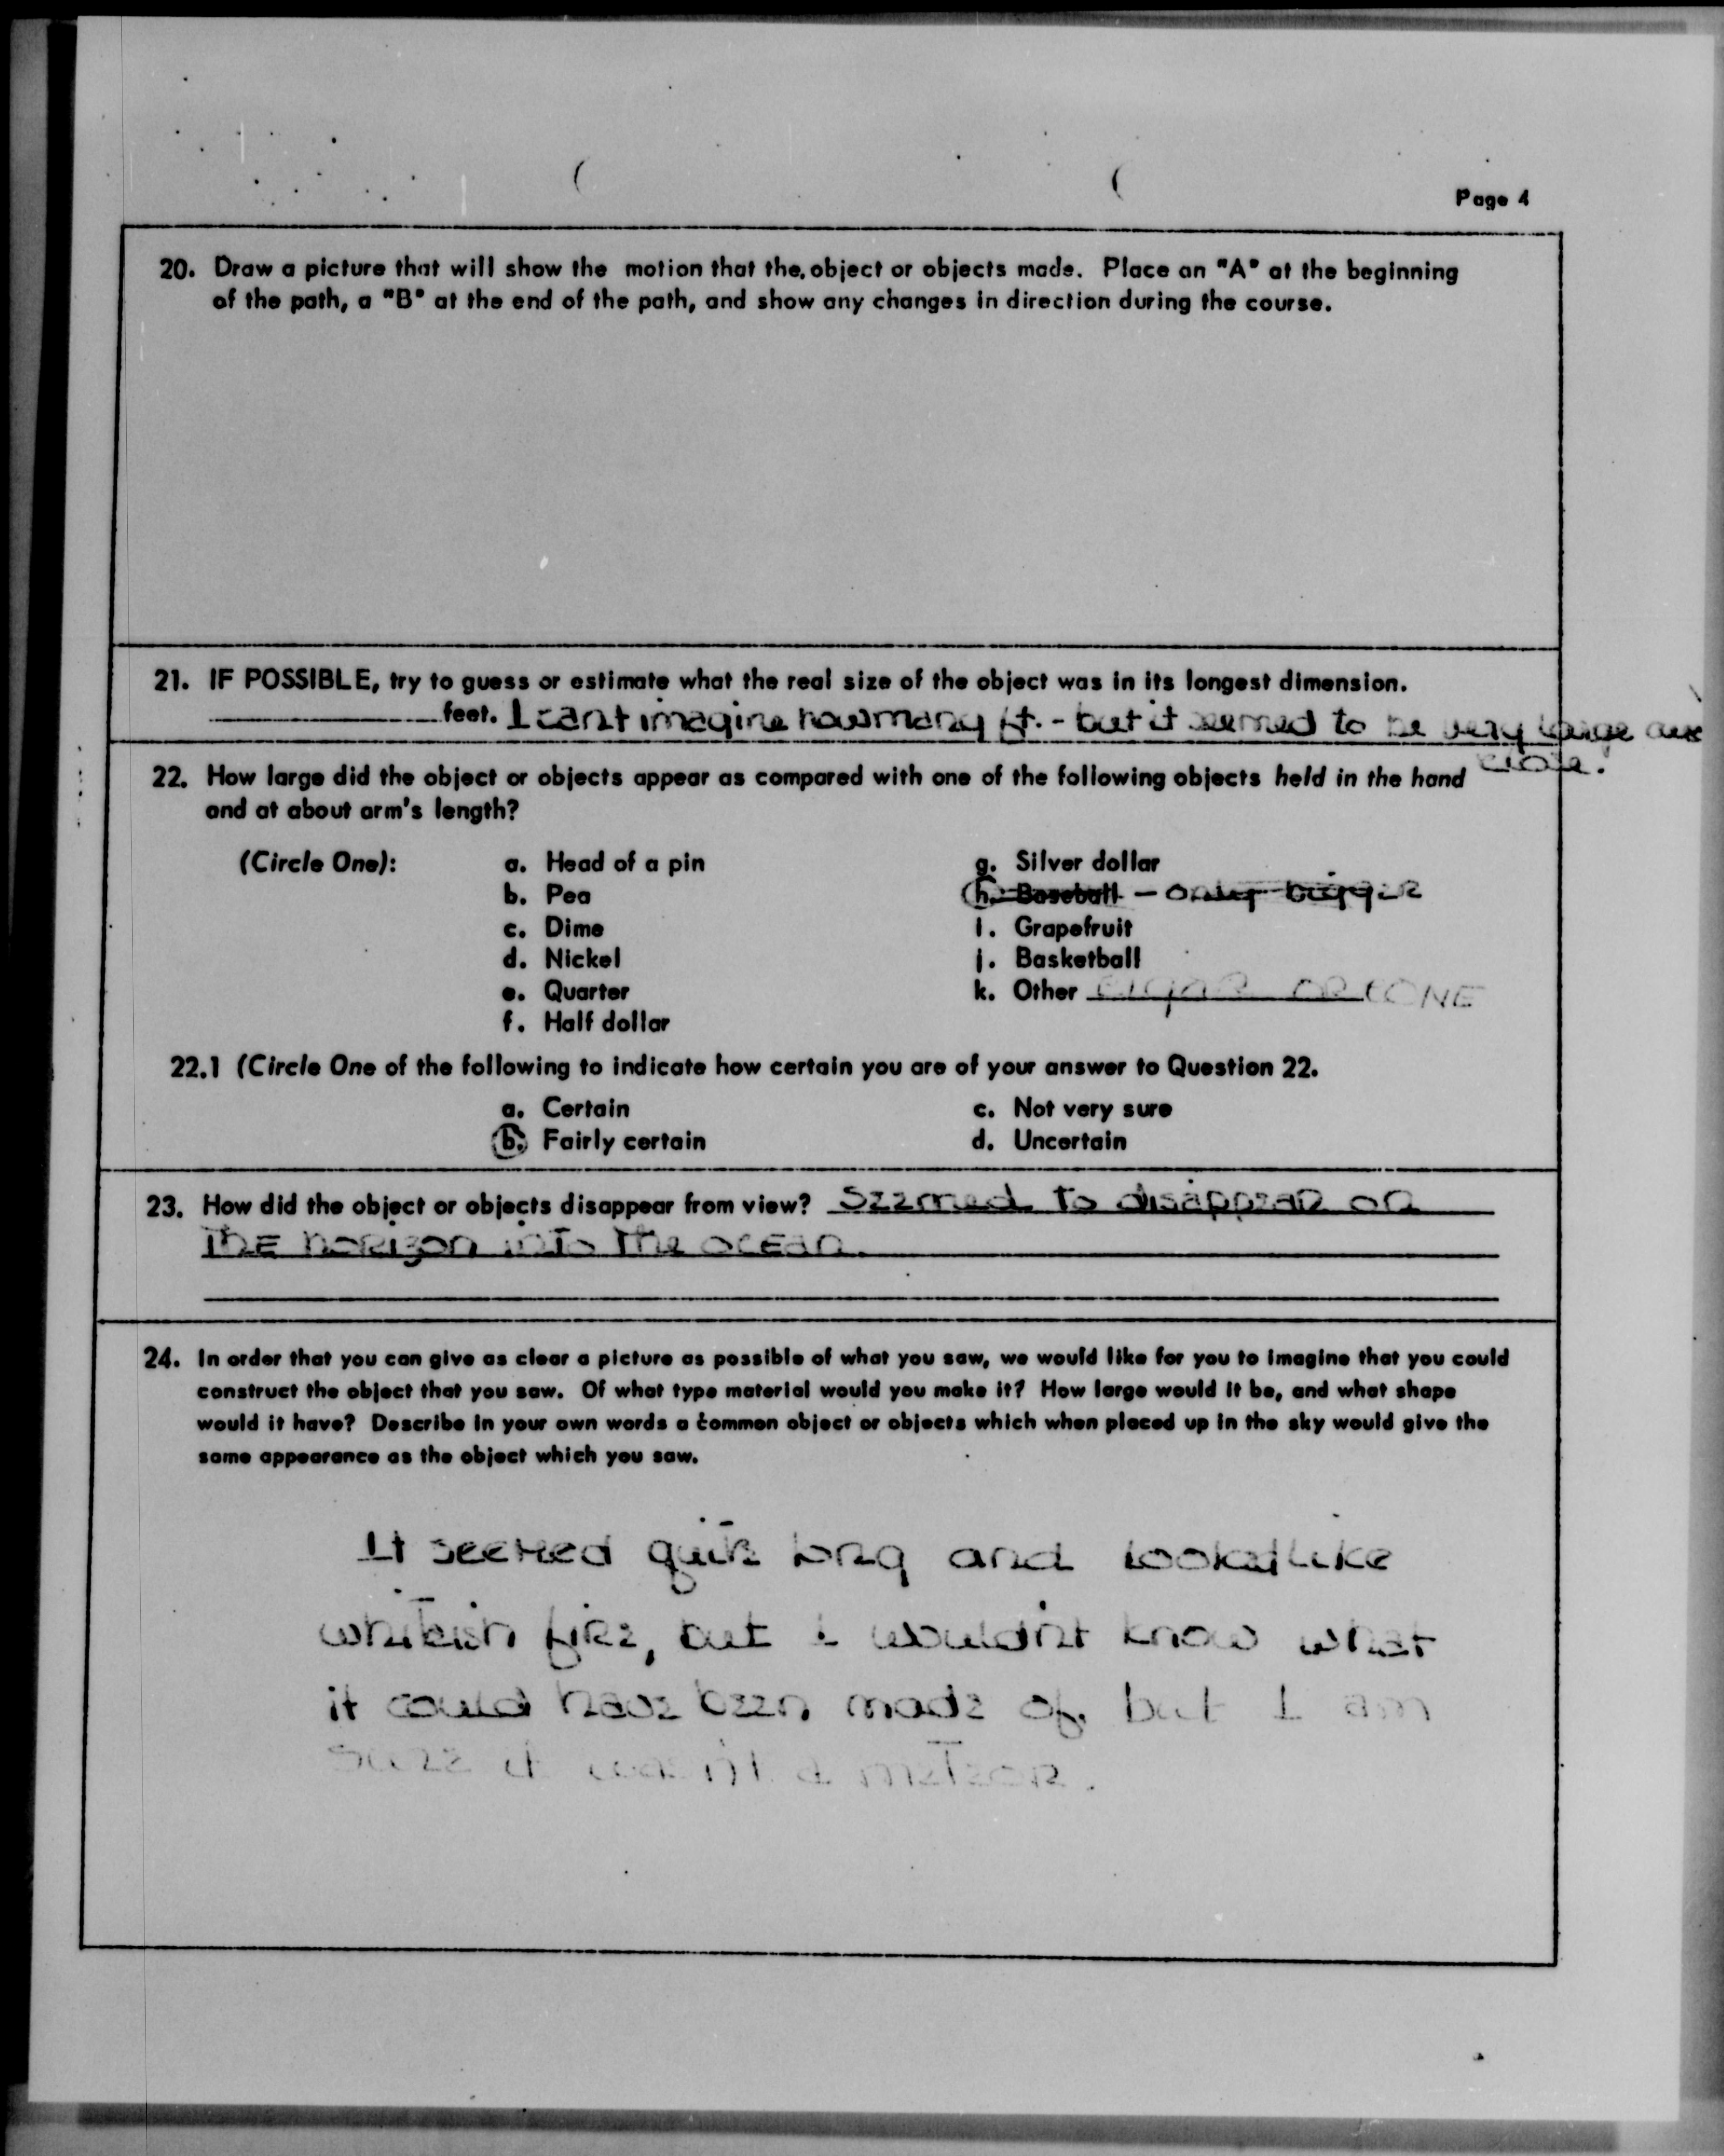 Page 4
20. Draw a picture that will show the motion that the object or objects made. Place an "A" at the beginning
of the path, a "B" at the end of the path, and show any changes in direction during the course.
21. IF POSSIBLE, try to guess or estimate what the real size of the object was in its longest dimension.
feet. I can't imagine how many ft. - but it seemed to be very large and
close.
22. How large did the object or objects appear as compared with one of the following objects held in the hand
and at about arm's length?
(Circle One): a. Head of a pin g. Silver dollar
b. Pea h. Baseball - only bigger
c. Dime i. Grapefruit
d. Nickel j. Basketball
e. Quarter k. Other cigar or CONE
f. Half dollar
22.1 (Circle One of the following to indicate how certain you are of your answer to Question 22.
a. Certain c. Not very sure
b. Fairly certain d. Uncertain
23. How did the object or objects disappear from view? Seemed to disappear on
THE horizon into the ocean.
24. In order that you can give as clear a picture as possible of what you saw, we would like for you to imagine that you could
construct the object that you saw. Of what type material would you make it? How large would it be, and what shape
would it have? Describe in your own words a common object or objects which when placed up in the sky would give the
same appearance as the object which you saw.
It seemed quite long and looked like
whiteish fire, but I wouldn't know what
it could have been made of. but I am
sure it wasn't a meteor.